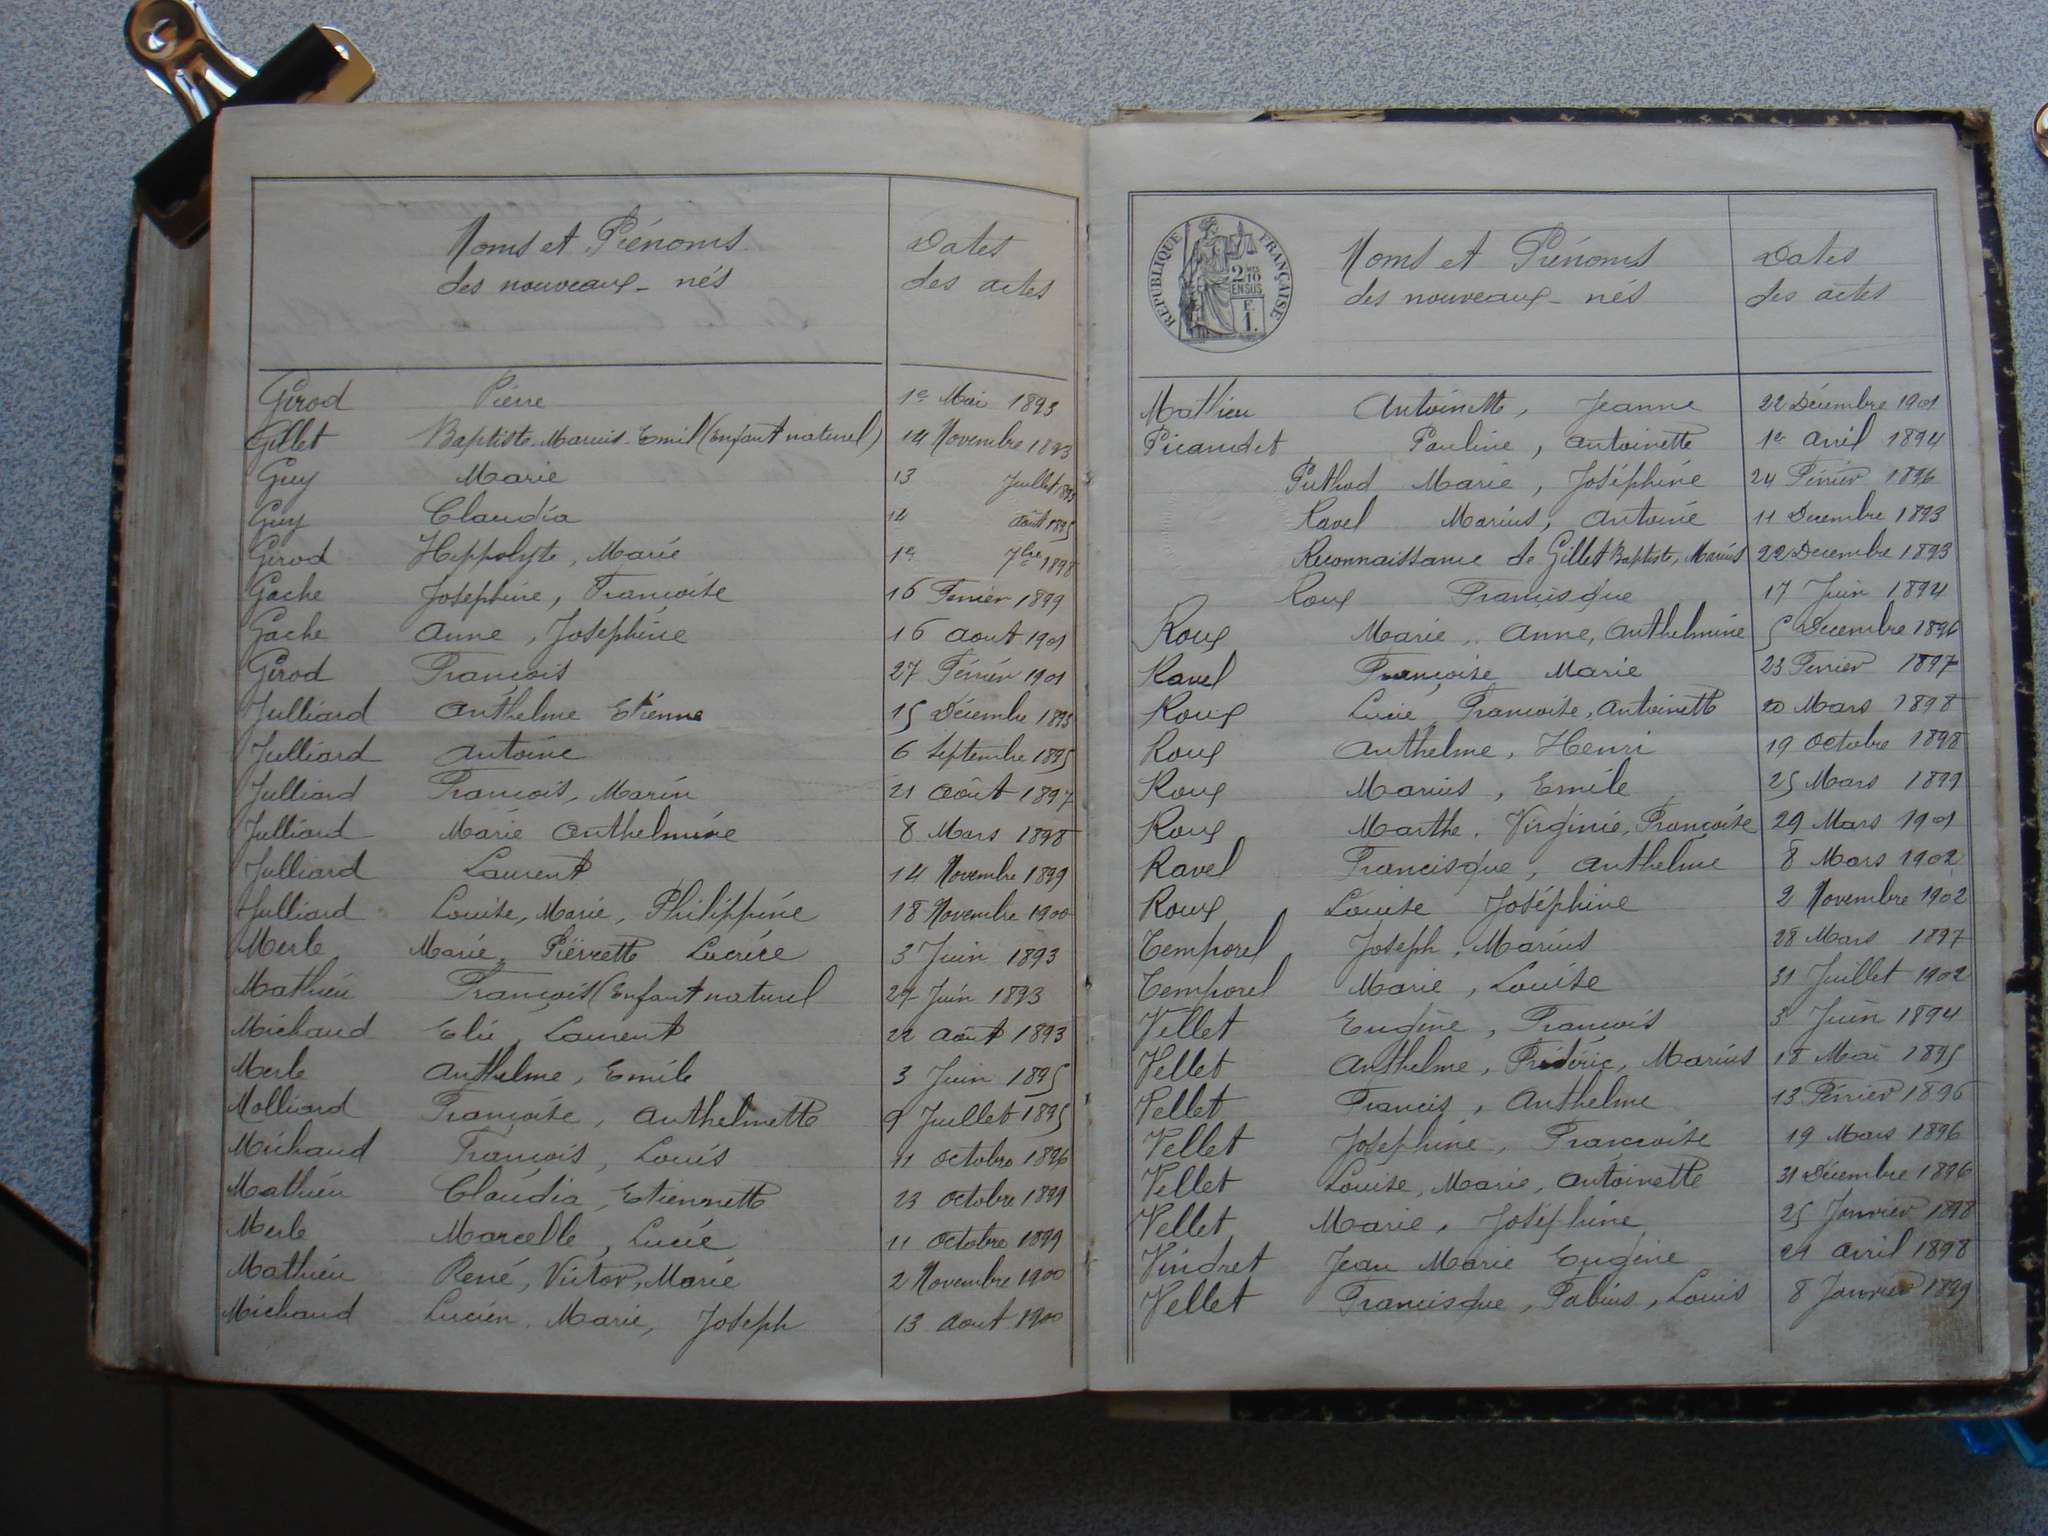 Noms et Prénoms
des nouveaux-nés
Dates
des actes
Girod Pierre 1er Mai 1893
Gillet Baptiste Marius Emil (Enfant naturel) 14 Novembre 1893
Guy Marie 13 Juillet
Guy Claudia 14 août 1895
Girod Hippolyte, Marie 1er 7bre 1898
Gache Joséphine, Françoise 16 Fevrier 1899
Gache Anne, Joséphine 16 Aout 1901
Girod François 27 Février 1901
Julliard Anthelme Etienne 15 Décembre 1893
Julliard Antoine 6 Septembre 1895
Julliard François, Marin 21 Août 1897
Julliard Marie Anthelmine 8 Mars 1898
Julliard Laurent 14 Novembre 1899
Julliard Louise, Marie, Philippine 18 Novembre 1900
Merle Marie, Pierrette Lucrèce 3 Juin 1893
Mathieu François (Enfant naturel 27 Juin 1893
Michaud Elie, Laurent 22 Août 1893
Merle Anthelme, Emile 3 Juin 1895
Molliard Françoise, Anthelmette 9 Juillet 1895
Michaud François, Louis 11 Octobre 1896
Mathieu Claudia, Etiennette 23 Octobre 1899
Merle Marcelle, Lucie 11 Octobre 1899
Mathieu René, Victor, Marie 2 Novembre 1900
Michaud Lucien, Marie, Joseph 13 Aout 1900
RÉPUBLIQUE FRANÇAISE
2 10
EN SUS
F.
1.
Noms et Prénoms
des nouveaux-nés
Dates
des actes
Mathieu Antoinette, Jeanne 22 Décembre 1901
Picandet Pauline, Antoinette 1er Avril 1894
Puthod Marie, Joséphine 24 Février 1896
Ravel Marius, Antoine 11 Decembre 1893
Reconnaissance de Gillet Baptiste, Marius 22 Decembre 1893
Roux Francisque 17 Juin 1894
Roux Marie, Anne, Anthelmine 5 Decembre 1896
Ravel Françoise Marie 23 Fevrier 1897
Roux Lucie, Françoise, Antoinette 20 Mars 1898
Roux Anthelme, Henri 19 Octobre 1898
Roux Marius, Emile 25 Mars 1899
Roux Marthe, Virginie, Françoise 29 Mars 1901
Ravel Francisque, Anthelme 8 Mars 1902
Roux Louise Joséphine 2 Novembre 1902
Temporel Joseph, Marius 28 Mars 1897
Temporel Marie, Louise 31 Juillet 1902
Vellet Eugène, François 3 Juin 1894
Vellet Anthelme, Frédéric, Marius 18 Mai 1895
Vellet Francis, Anthelme 13 Février 1896
Vellet Joséphine, Françoise 19 Mars 1896
Vellet Louise, Marie, Antoinette 31 Décembre 1896
Vellet Marie, Joséphine 25 Janvier 1898
Vindret Jean Marie Eugène 21 Avril 1898
Vellet Francisque, Fabius, Louis 8 Janvier 1899